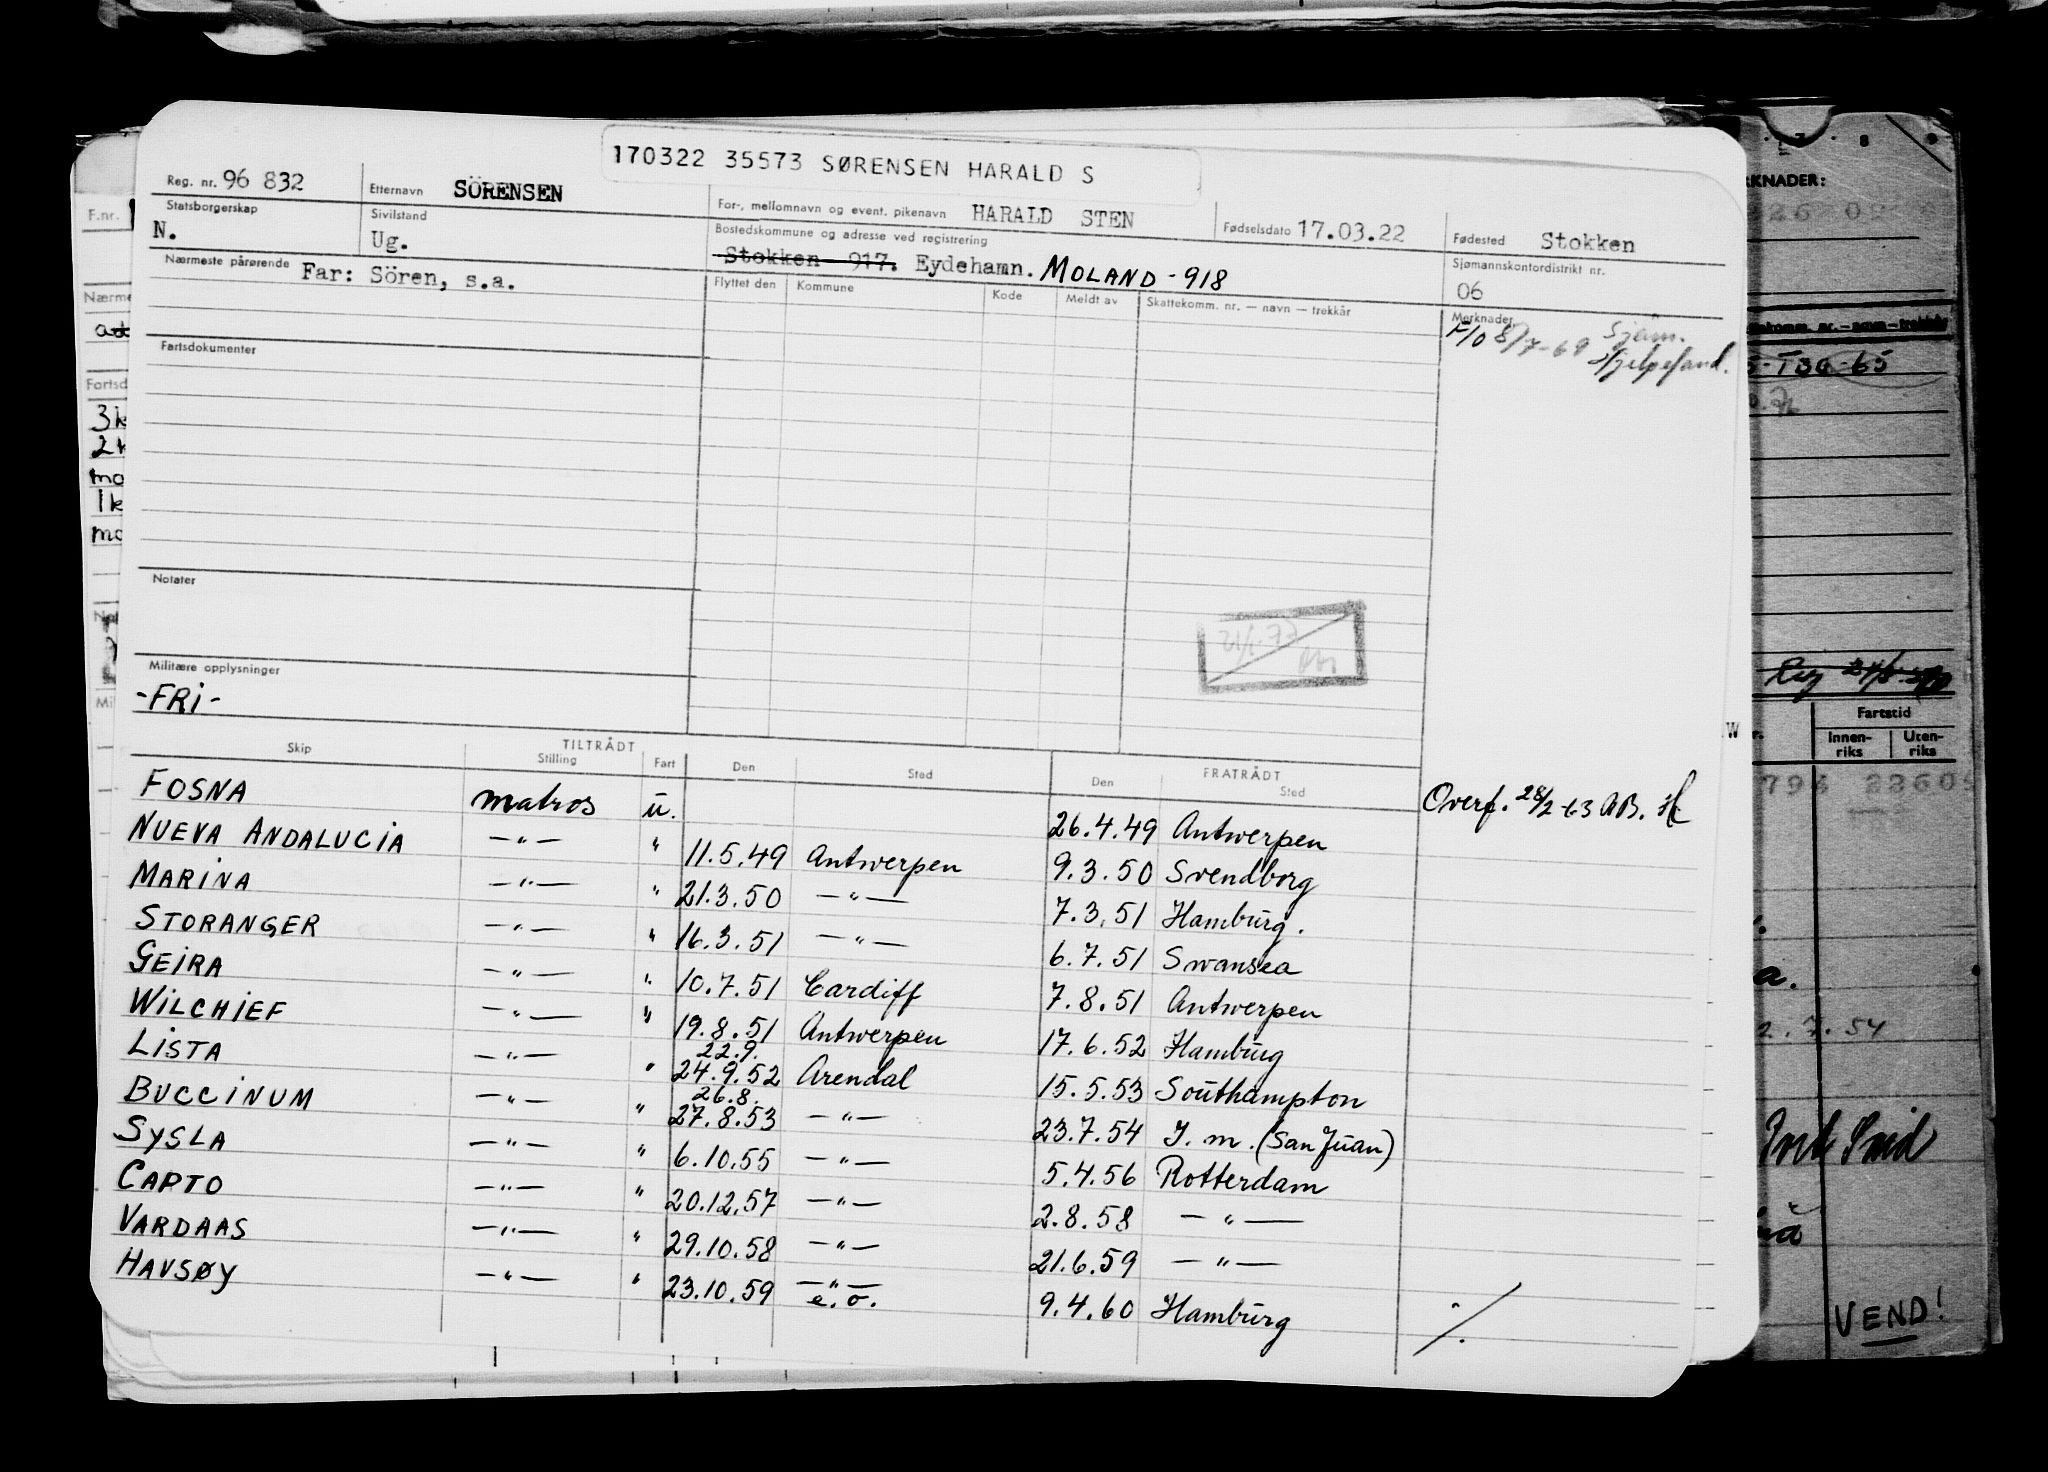 170322 35573 SØRENSEN HARALD S
Reg. nr. 96 832 Etternavn SÖRENSEN For-, mellomnavn og event. pikenavn HARALD STEN Fødselsdato 17.03.22 Fødested Stokken
Statsborgerskap N. Sivilstand Ug. Bostedskommune og adresse ved registrering Sjømannskontordistrikt nr. 06
Stokken 917. Eydehamn. MOLAND - 918
Nærmeste pårørende Far: Sören, s.a.
Flyttet den Kommune Kode Meldt av Skattekomm. nr. — navn — trekkår Merknader
F/O 8/7-69 Sjøm.
Hjelpefond.
Fartsdokumenter
Notater
Militære opplysninger
-FRi-
TILTRÅDT FRATRÅDT
Skip Stilling Fart Den Sted Den Sted
FOSNA matros u. 26.4.49 Antwerpen Overf. 28/2-63 AB.
NUEVA ANDALUCIA —"— " 11.5.49 Antwerpen 9.3.50 Svendborg
MARINA —"— " 21.3.50 —"— 7.3.51 Hamburg.
STORANGER —"— " 16.3.51 —"— 6.7.51 Swansea
GEIRA —"— " 10.7.51 Cardiff 7.8.51 Antwerpen
WILCHIEF —"— " 19.8.51 Antwerpen 17.6.52 Hamburg
22.9.
LISTA —"— " 24.9.52 Arendal 15.5.53 Southampton
26.8.
BUCCINUM —"— " 27.8.53 —"— 23.7.54 I.m. (San Juan)
SYSLA —"— " 6.10.55 —"— 5.4.56 Rotterdam
CAPTO —"— " 20.12.57 —"— 2.8.58 —"—
VARDAAS —"— " 29.10.58 —"— 21.6.59 —"—
HAVSØY —"— " 23.10.59 —"— 9.4.60 Hamburg ·/.
e.o.
F.nr.
3k
2k
mo
1k
mo
RKNADER:
Fartstid
Innen-
riks
Uten-
riks
W
2.7.54
VEND!